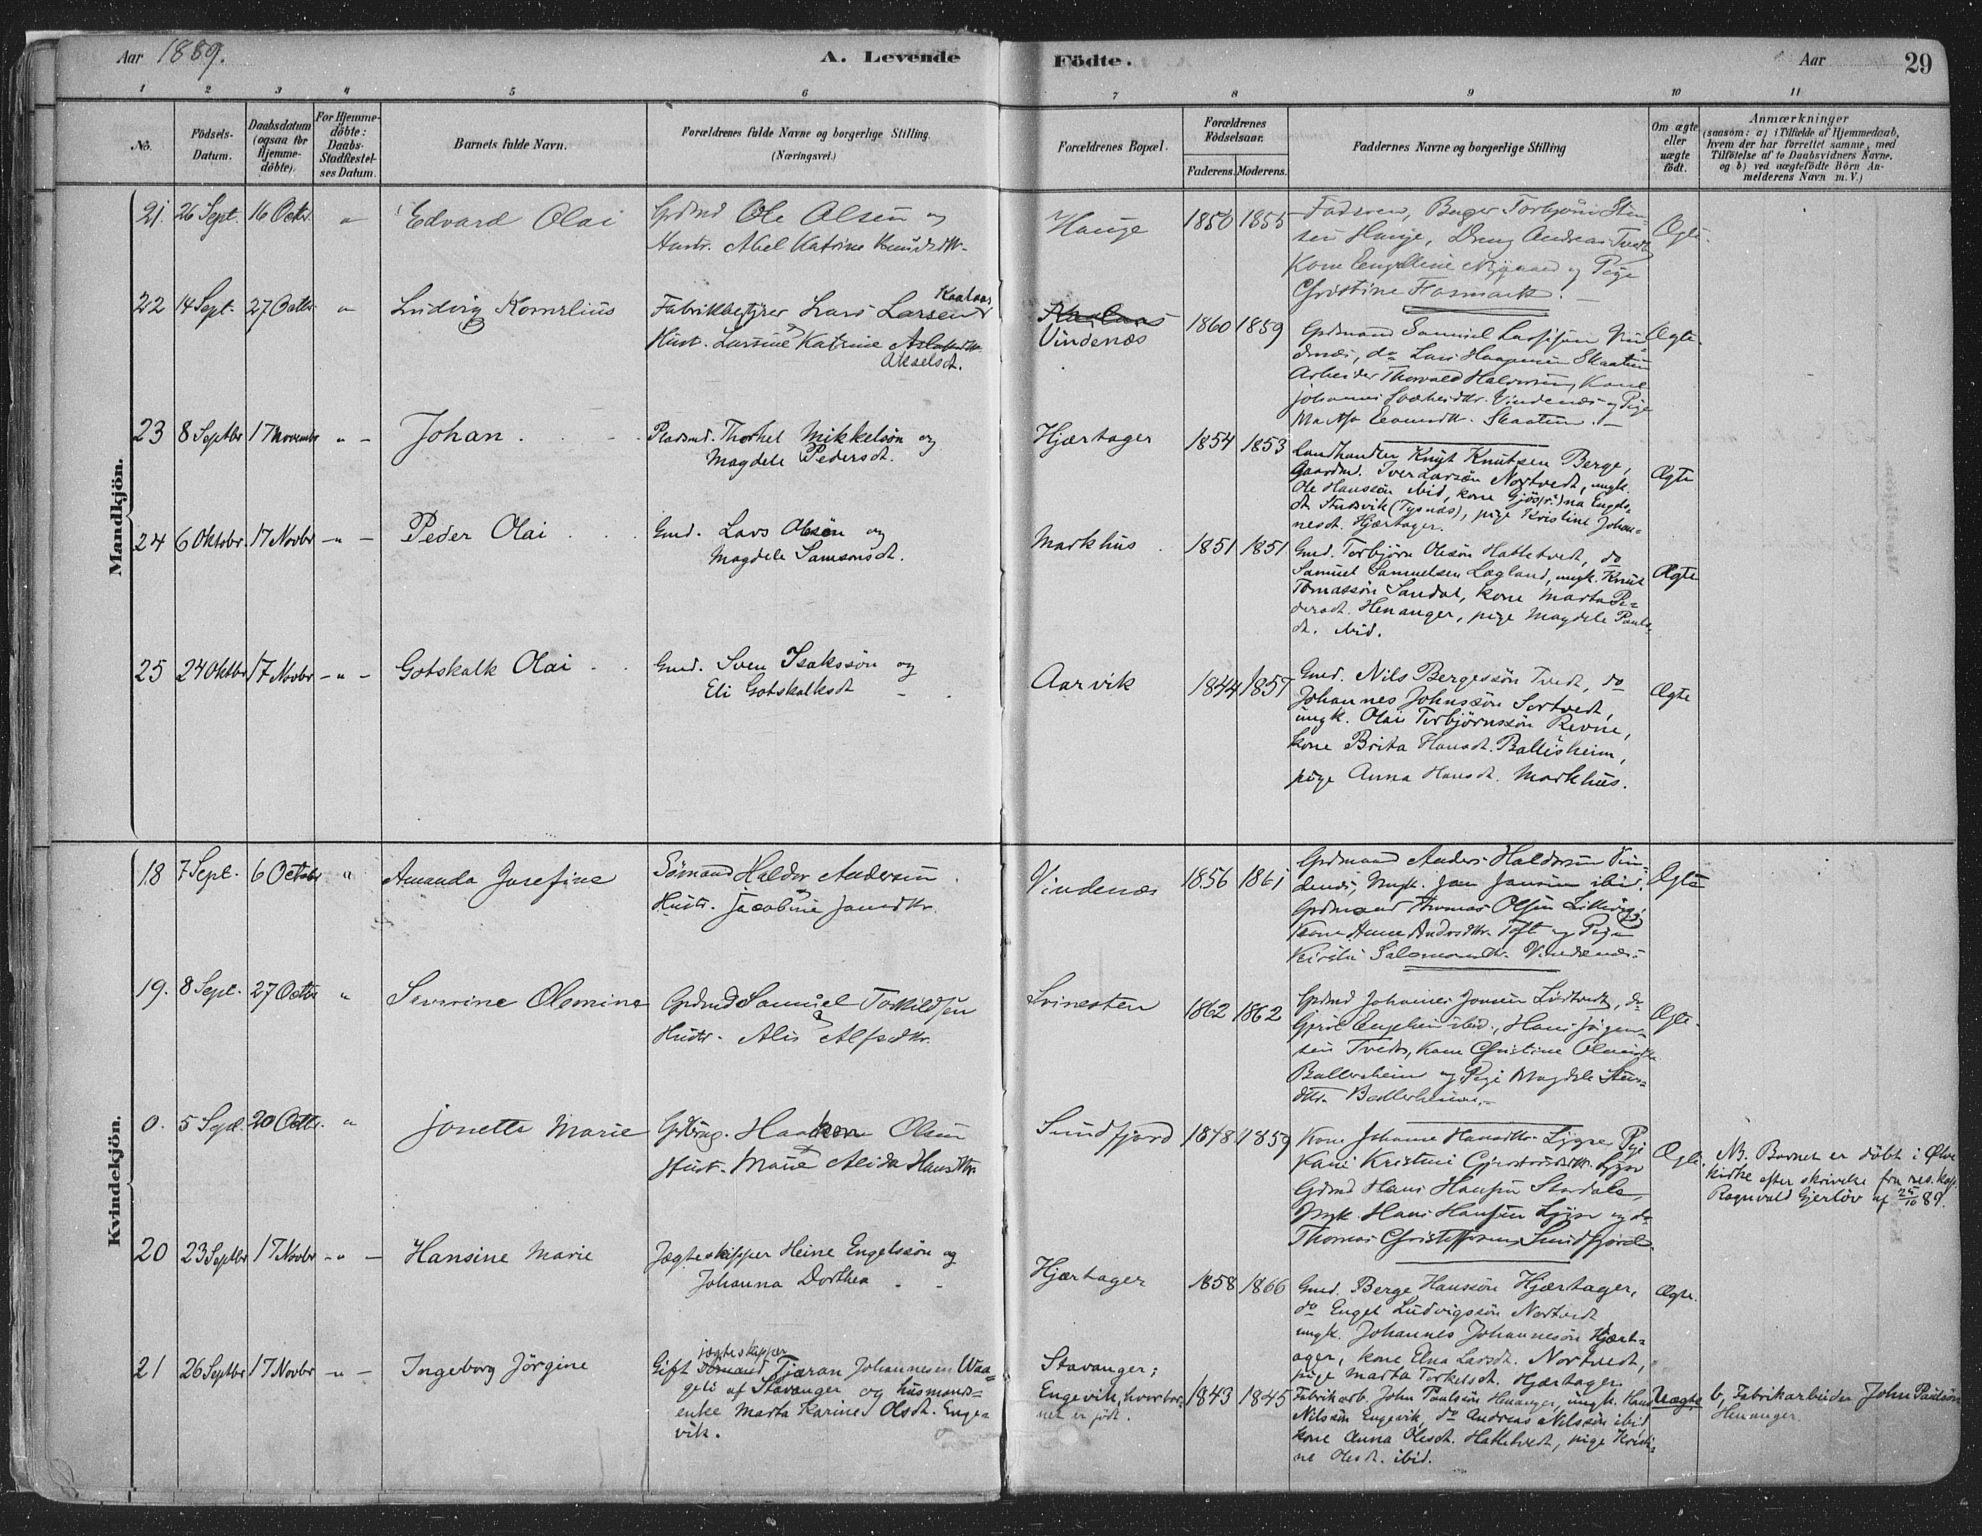 Aar 1889. A. Levende Födte. Aar 29
1 2 3 4 5 6 7 8 9 10 11
No. Födsels-Datum. Daabsdatum (ogsaa for Hjemmedöbte). For Hjemmedöbte: Daabs-Stadfæstelses Datum. Barnets fulde Navn. Forældrenes fulde Navne og borgerlige Stilling. (Næringsvei.) Forældrenes Bopæl. Forældrenes Födselsaar. Faderens. Moderens. Faddernes Navne og borgerlige Stilling Om ægte eller uægte födt. Anmærkninger (saasom: a) i Tilfælde af Hjemmedaab, hvem der har forrettet samme, med Tilföielse af to Daabsvidners Navne, og b) ved uægtefödte Börn Anmelderens Navn m. V.)
Mandkjön.
21. 26 Sept. 16 Octbr. " Edvard Olai
Grdmd Ole Olsen og
Hustr. Abel Katrine Knudsdtr.
Hauge 1850 1855
Faderen, Torbjörn
Hauge, Dreng Andreas Tvedt
Kone Nygaard og Pige
Christine
Ægte.
22 14 Sept. 27 Octbr. " Ludvig Kornelius
Fabrikbestyrer Lars Larsen Kaalaas
Hust. Lursine Katrine
Akselsdt.
Vindenæs 1860 1859
Grdmand Samuel Vin-
denæs, do Lars Skaatun
Arbeider Thorvald Haldorsen, Kone
Johanne Vindenæs og Pige
Martha Skaatun.
Ægte.
23 8 Septbr 17 Novembr " - Johan.
Pladsmd. Thorkel Mikkelsön og
Magdele Pedersdt.
Hjærtager 1854 1853
Landhandler Knut Knutsen Berge,
Gaardmd. Iver Larsön Nortvedt, ungk.
Ole Hanssön ibid, kone
dt. Stusvik (Tysnæs), pige Kristine Johan-
nesdt. Hjærtager.
Ægte
24 6 Oktobr. 17 Novbr - " - Peder Olai
Gmd. Lars Olsön og
Magdele Samsonsdt.
Markhus. 1851 1851
Gmd. Torbjørn Olesön Hattetvedt, do
Samuel Samuelsen Lægland, ungk. Knut
Tomassön Sandal, kone Marta Pe-
dersdt. Henanger, pige Magdele Pauls-
dt. ibid.
Ægte
25 24 Oktbr 17 Novbr - " - Gotskalk Olai
Gmd. Sven Isakssön og
Eli Gotskalksdt
Aarvik 1844 1857
Gmd. Nils Bergessön Tvedt, do
Johannes Johnssön Sortvedt,
ungk. Olai Torbjørnssön Revne,
kone Brita Hansdt. Ballisheim,
pige Anna Hansdt. Markhus.
Ægte
Kvindekjön.
18 7 Sept. 6 Octobr " Amanda Josefine
Sømand Haldor Andersen
Hustr. Jacobine Jansdtr.
Vindenæs 1856 1861
Grdmand Anders Haldorsen Vin-
denæs, Ungk. Jan Jansen ibid.
Grdmand Thomas Olsen
Kone Anne Andersdtr. Toft og Pige
Kirsti Salomonsdtr. Vindenæs.
Ægte
19. 8 Sept. 27 Octbr " Severine Olomine
Grdmd Samuel Torkildsen
Hustr. Alis Alfsdtr.
Svinesten 1862 1862
Grdmd Johannes Jonsen do
ibid., Hans Jørgen-
sen Tvedt, Kone Christine
Ballesheim og Pige Magdele
Ballesheim.
Ægte.
0. 5 Sept. 20 Octbr. " Jonetta Marie
Gdbrug. Haakon Olsen
Hust. Marie Alida Hansdtr.
Sundfjord 1848 1859
Kone Johanne Hansdtr. Pige
Kari Kristine
Grdmd Hans Hansen
Ungk. Hans Hansen og do
Thomas Christoffersen, Sundfjord.
Ægte.
NB. Barnet er döbt i Ølve
kirke efter skrivelse fra res. kap.
Ragnvald Gjerløv af 25/10 89.
20 23 Septbr 17 Novbr - " - Hansine Marie
Jægteskipper Heine Engelssön og
Johanna Dorthea
Hjærtager 1858 1866
Gmd. Berge Hanssön Hjærtager,
do Engel Ludvigssön Nortvedt
ungk. Johannes Johannesön Hjært-
ager, kone Elna Larsdt. Nortvedt,
pige Marta Torkelsdt. Hjærtager.
Ægte.
21 26 Septbr 17 Novbr - " - Ingeborg Jörgine
jægteskipper
Gift Sömand Tjæran Johannesen Waa-
geli af Stavanger og husmands-
enke Marta Karine Olsdt. Enge-
vik.
Stavanger;
Engevik, hvor bar-
net er født.
1843 1845
Fabrikarb. John Paulsön Henanger, ungk. Hans
Nilssön Engevik, do Andreas Nilssön ibid
kone Anna Olesdt. Hattetvedt, pige Kristi-
ne Olesdt. ibid.
Uægte
b, Fabrikarbeider John Paulsön
Henanger.